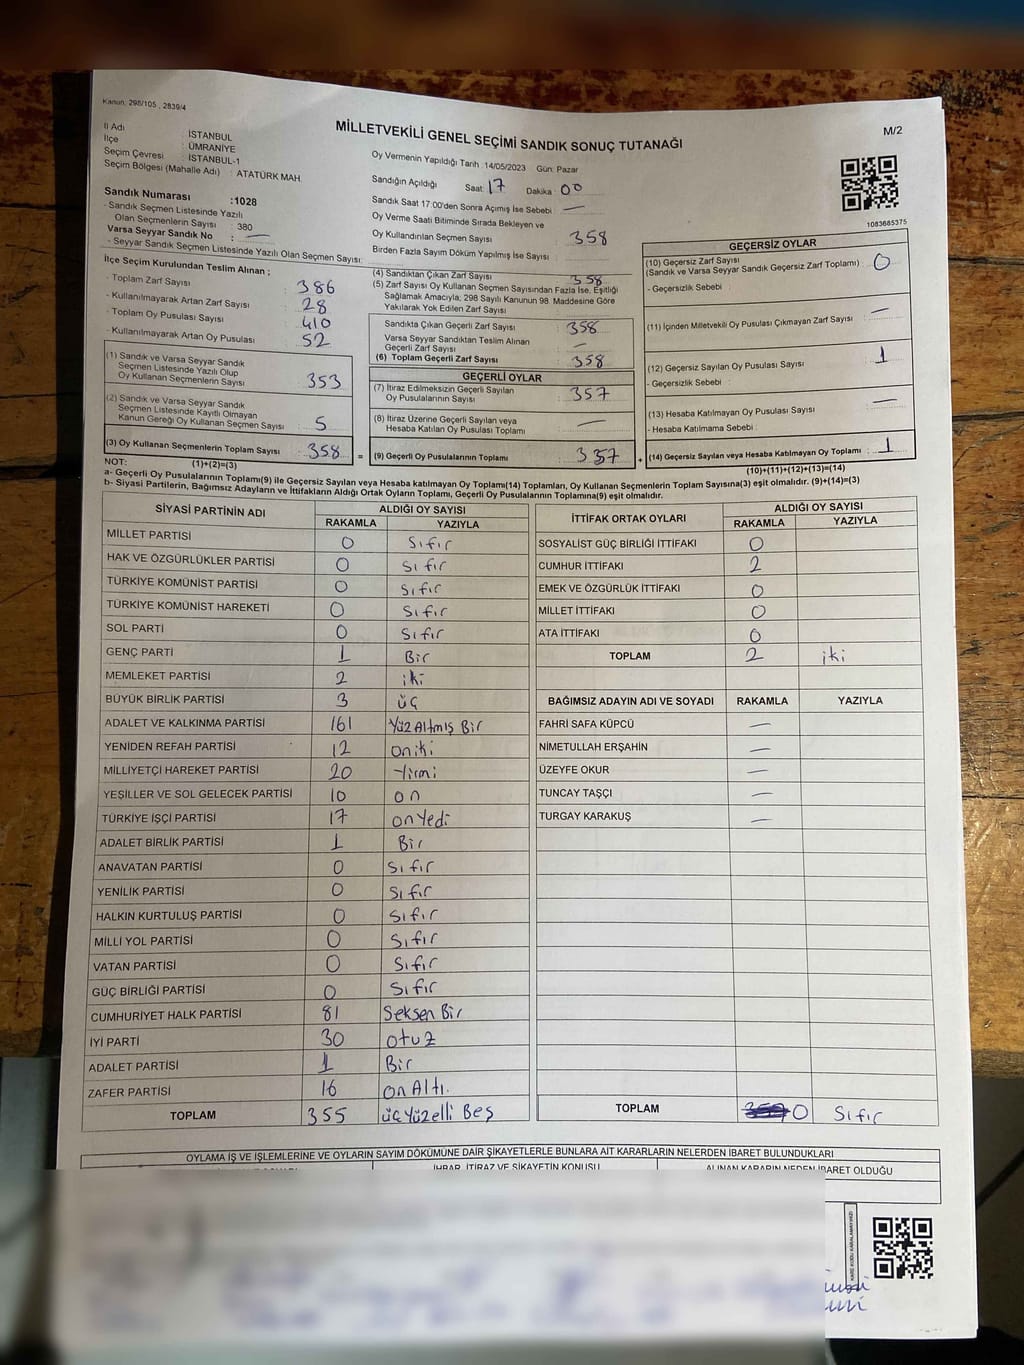 Kanun: 298/105 , 2839/4
MİLLETVEKİLİ GENEL SEÇİMİ SANDIK SONUÇ TUTANAĞI
M/2
İl Adı : İSTANBUL
İlçe : ÜMRANİYE
Seçim Çevresi : İSTANBUL-1
Seçim Bölgesi (Mahalle Adı) : ATATÜRK MAH.
Sandık Numarası :1028
- Sandık Seçmen Listesinde Yazılı
Olan Seçmenlerin Sayısı : 380
Varsa Seyyar Sandık No : —
- Seyyar Sandık Seçmen Listesinde Yazılı Olan Seçmen Sayısı:
Oy Vermenin Yapıldığı Tarih :14/05/2023 Gün: Pazar
Sandığın Açıldığı Saat: 17 Dakika : 00
Sandık Saat 17:00'den Sonra Açımış İse Sebebi : —
Oy Verme Saati Bitiminde Sırada Bekleyen ve
Oy Kullandırılan Seçmen Sayısı : 358
Birden Fazla Sayım Döküm Yapılmış İse Sayısı :
1083685375
İlçe Seçim Kurulundan Teslim Alınan ;
- Toplam Zarf Sayısı : 386
- Kullanılmayarak Artan Zarf Sayısı : 28
- Toplam Oy Pusulası Sayısı : 410
- Kullanılmayarak Artan Oy Pusulası : 52
(1) Sandık ve Varsa Seyyar Sandık
Seçmen Listesinde Yazılı Olup
Oy Kullanan Seçmenlerin Sayısı : 353
(2) Sandık ve Varsa Seyyar Sandık
Seçmen Listesinde Kayıtlı Olmayan
Kanun Gereği Oy Kullanan Seçmen Sayısı : 5
(3) Oy Kullanan Seçmenlerin Toplam Sayısı : 358 =
(4) Sandıktan Çıkan Zarf Sayısı : 358
(5) Zarf Sayısı Oy Kullanan Seçmen Sayısından Fazla İse, Eşitliği
Sağlamak Amacıyla; 298 Sayılı Kanunun 98. Maddesine Göre
Yakılarak Yok Edilen Zarf Sayısı :
Sandıkta Çıkan Geçerli Zarf Sayısı : 358
Varsa Seyyar Sandıktan Teslim Alınan
Geçerli Zarf Sayısı : —
(6) Toplam Geçerli Zarf Sayısı : 358
GEÇERLİ OYLAR
(7) İtiraz Edilmeksizin Geçerli Sayılan
Oy Pusulalarının Sayısı : 357
(8) İtiraz Üzerine Geçerli Sayılan veya
Hesaba Katılan Oy Pusulası Toplamı : —
(9) Geçerli Oy Pusulalarının Toplamı : 357 +
GEÇERSİZ OYLAR
(10) Geçersiz Zarf Sayısı
(Sandık ve Varsa Seyyar Sandık Geçersiz Zarf Toplamı) : 0
- Geçersizlik Sebebi :
(11) İçinden Milletvekili Oy Pusulası Çıkmayan Zarf Sayısı : —
(12) Geçersiz Sayılan Oy Pusulası Sayısı : 1
- Geçersizlik Sebebi :
(13) Hesaba Katılmayan Oy Pusulası Sayısı : —
- Hesaba Katılmama Sebebi :
(14) Geçersiz Sayılan veya Hesaba Katılmayan Oy Toplamı : 1
NOT: (1)+(2)=(3) (10)+(11)+(12)+(13)=(14)
a- Geçerli Oy Pusulalarının Toplamı(9) ile Geçersiz Sayılan veya Hesaba katılmayan Oy Toplamı(14) Toplamları, Oy Kullanan Seçmenlerin Toplam Sayısına(3) eşit olmalıdır. (9)+(14)=(3)
b- Siyasi Partilerin, Bağımsız Adayların ve İttifakların Aldığı Ortak Oyların Toplamı, Geçerli Oy Pusulalarının Toplamına(9) eşit olmalıdır.
SİYASİ PARTİNİN ADI ALDIĞI OY SAYISI
RAKAMLA YAZIYLA
MİLLET PARTİSİ 0 Sıfır
HAK VE ÖZGÜRLÜKLER PARTİSİ 0 Sıfır
TÜRKİYE KOMÜNİST PARTİSİ 0 Sıfır
TÜRKİYE KOMÜNİST HAREKETİ 0 Sıfır
SOL PARTİ 0 Sıfır
GENÇ PARTİ 1 Bir
MEMLEKET PARTİSİ 2 iki
BÜYÜK BİRLİK PARTİSİ 3 üç
ADALET VE KALKINMA PARTİSİ 161 Yüz Altmış Bir
YENİDEN REFAH PARTİSİ 12 oniki
MİLLİYETÇİ HAREKET PARTİSİ 20 Yirmi
YEŞİLLER VE SOL GELECEK PARTİSİ 10 on
TÜRKİYE İŞÇİ PARTİSİ 17 onYedi
ADALET BİRLİK PARTİSİ 1 Bir
ANAVATAN PARTİSİ 0 Sıfır
YENİLİK PARTİSİ 0 Sıfır
HALKIN KURTULUŞ PARTİSİ 0 Sıfır
MİLLİ YOL PARTİSİ 0 Sıfır
VATAN PARTİSİ 0 Sıfır
GÜÇ BİRLİĞİ PARTİSİ 0 Sıfır
CUMHURİYET HALK PARTİSİ 81 Seksen Bir
İYİ PARTİ 30 otuz
ADALET PARTİSİ 1 Bir
ZAFER PARTİSİ 16 on Altı.
TOPLAM 355 üçYüzelli Beş
İTTİFAK ORTAK OYLARI ALDIĞI OY SAYISI
RAKAMLA YAZIYLA
SOSYALİST GÜÇ BİRLİĞİ İTTİFAKI 0
CUMHUR İTTİFAKI 2
EMEK VE ÖZGÜRLÜK İTTİFAKI 0
MİLLET İTTİFAKI 0
ATA İTTİFAKI 0
TOPLAM 2 iki
BAĞIMSIZ ADAYIN ADI VE SOYADI RAKAMLA YAZIYLA
FAHRİ SAFA KÜPCÜ —
NİMETULLAH ERŞAHİN —
ÜZEYFE OKUR —
TUNCAY TAŞÇI —
TURGAY KARAKUŞ —
TOPLAM 0 Sıfır
OYLAMA İŞ VE İŞLEMLERİNE VE OYLARIN SAYIM DÖKÜMÜNE DAİR ŞİKAYETLERLE BUNLARA AİT KARARLARIN NELERDEN İBARET BULUNDUKLARI
İHBAR, İTİRAZ VE ŞİKAYETİN KONUSU ALINAN KARARIN NEDEN İBARET OLDUĞU
KARE KODU KARALAMAYINIZ!